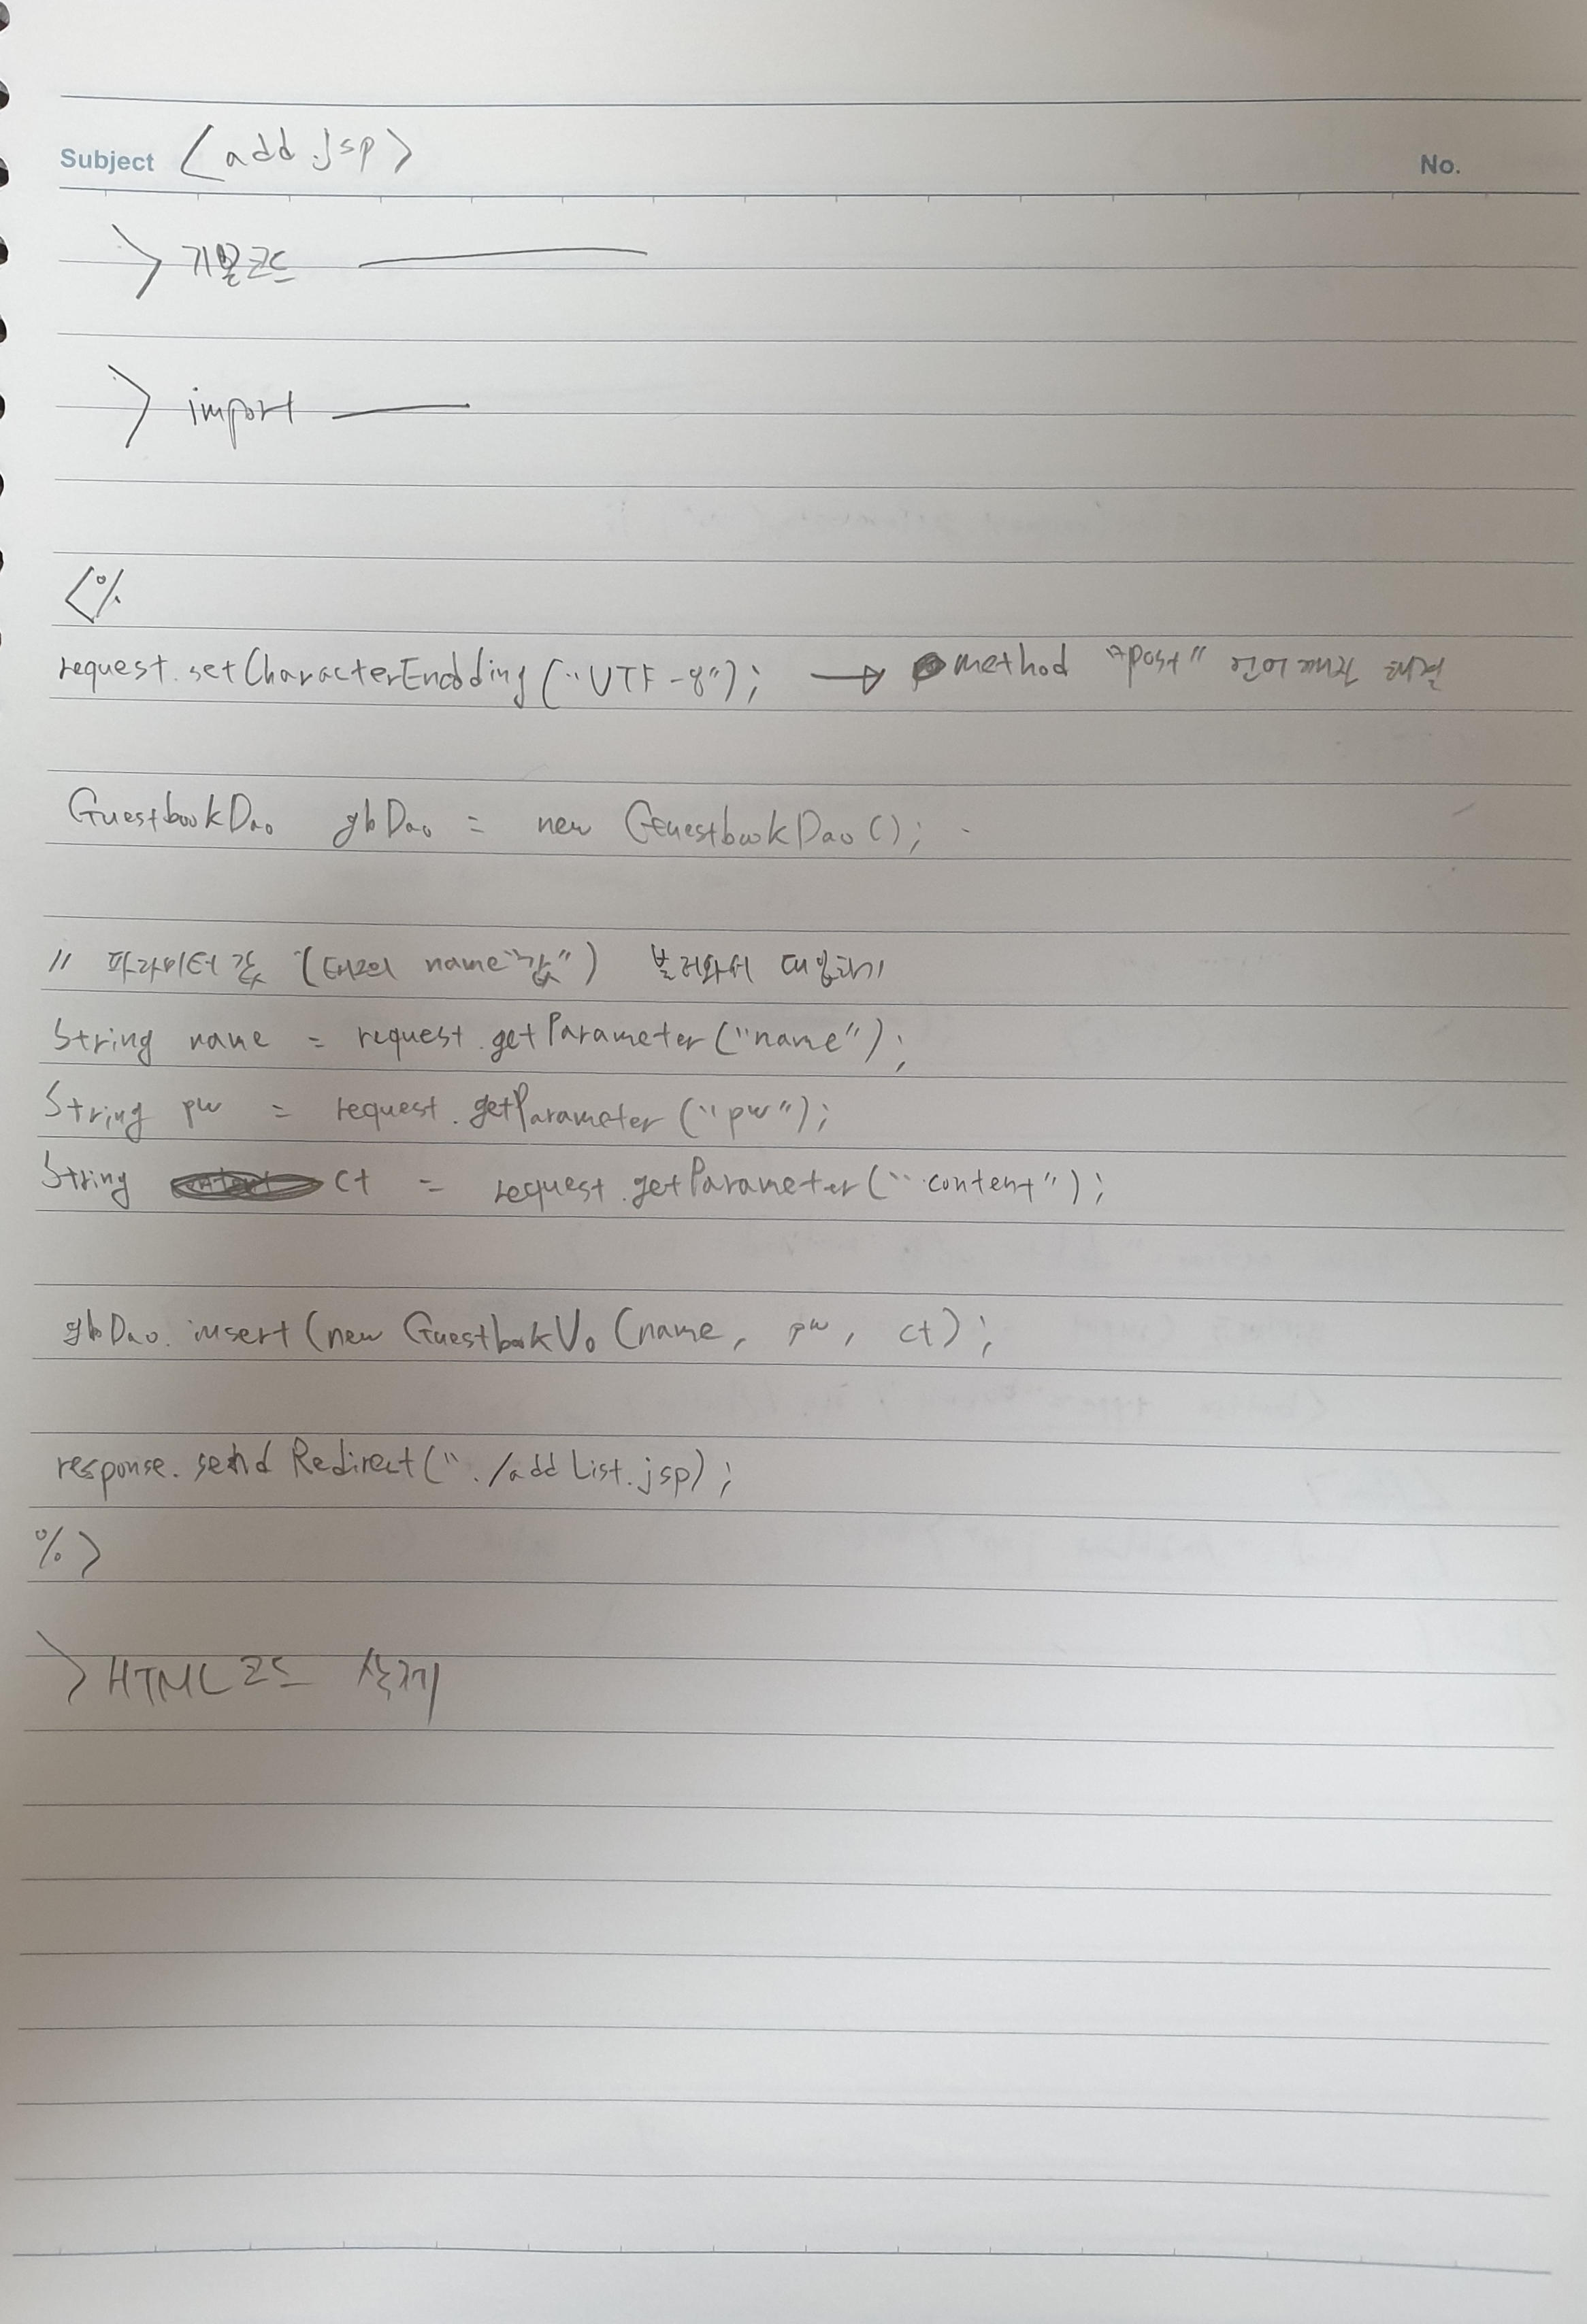 Subject <add.jsp>
No.
> 기본코드
> import
<%
request.setCharacterEncodding("UTF-8"); → method "post" 언어깨짐 해결
GuestbookDao gbDao = new GuestbookDao();
// 파라미터 값 (태그의 name"값") 불러와서 대입하기
String name = request.getParameter("name");
String pw = request.getParameter("pw");
String ct = request.getParameter("content");
gbDao.insert(new GuestbookVo(name, pw, ct);
response.sendRedirect("./addList.jsp);
%>
> HTML코드 삭제